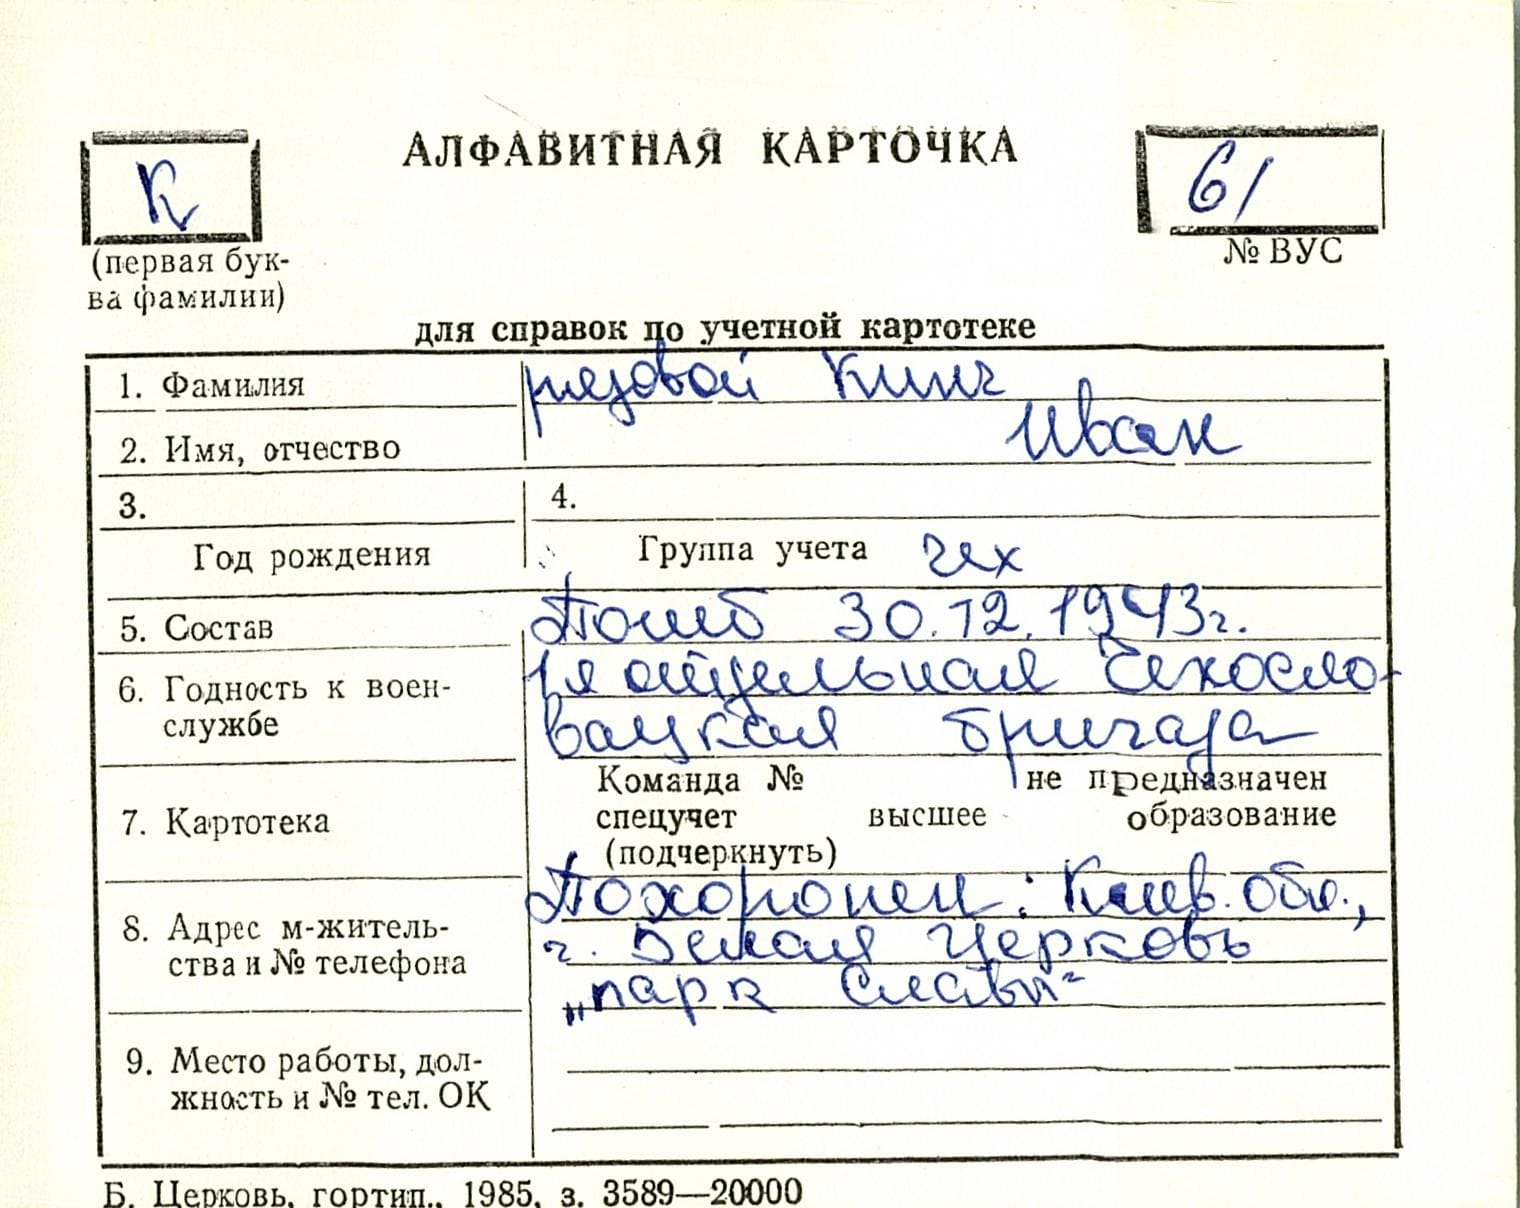 АЛФАВИТНАЯ КАРТОЧКА
К
61
(первая бук-
ва фамилии)
№ ВУС
для справок по учетной картотеке
1. Фамилия рядовой Кинч
2. Имя, отчество Иван
3.
4.
Год рождения
Группа учета чех
5. Состав Погиб 30.12.1943г.
6. Годность к воен-
службе
1я отдельная Чехосло-
вацкая бригада
7. Картотека
Команда № не предназначен
спецучет высшее образование
(подчеркнуть)
8. Адрес м-житель-
ства и № телефона
Похоронен: Киев. обл.,
г. Белая Церковь
„парк Славы"
9. Место работы, дол-
жность и № тел. ОК
Б. Церковь, гортип., 1985, з. 3589—20000